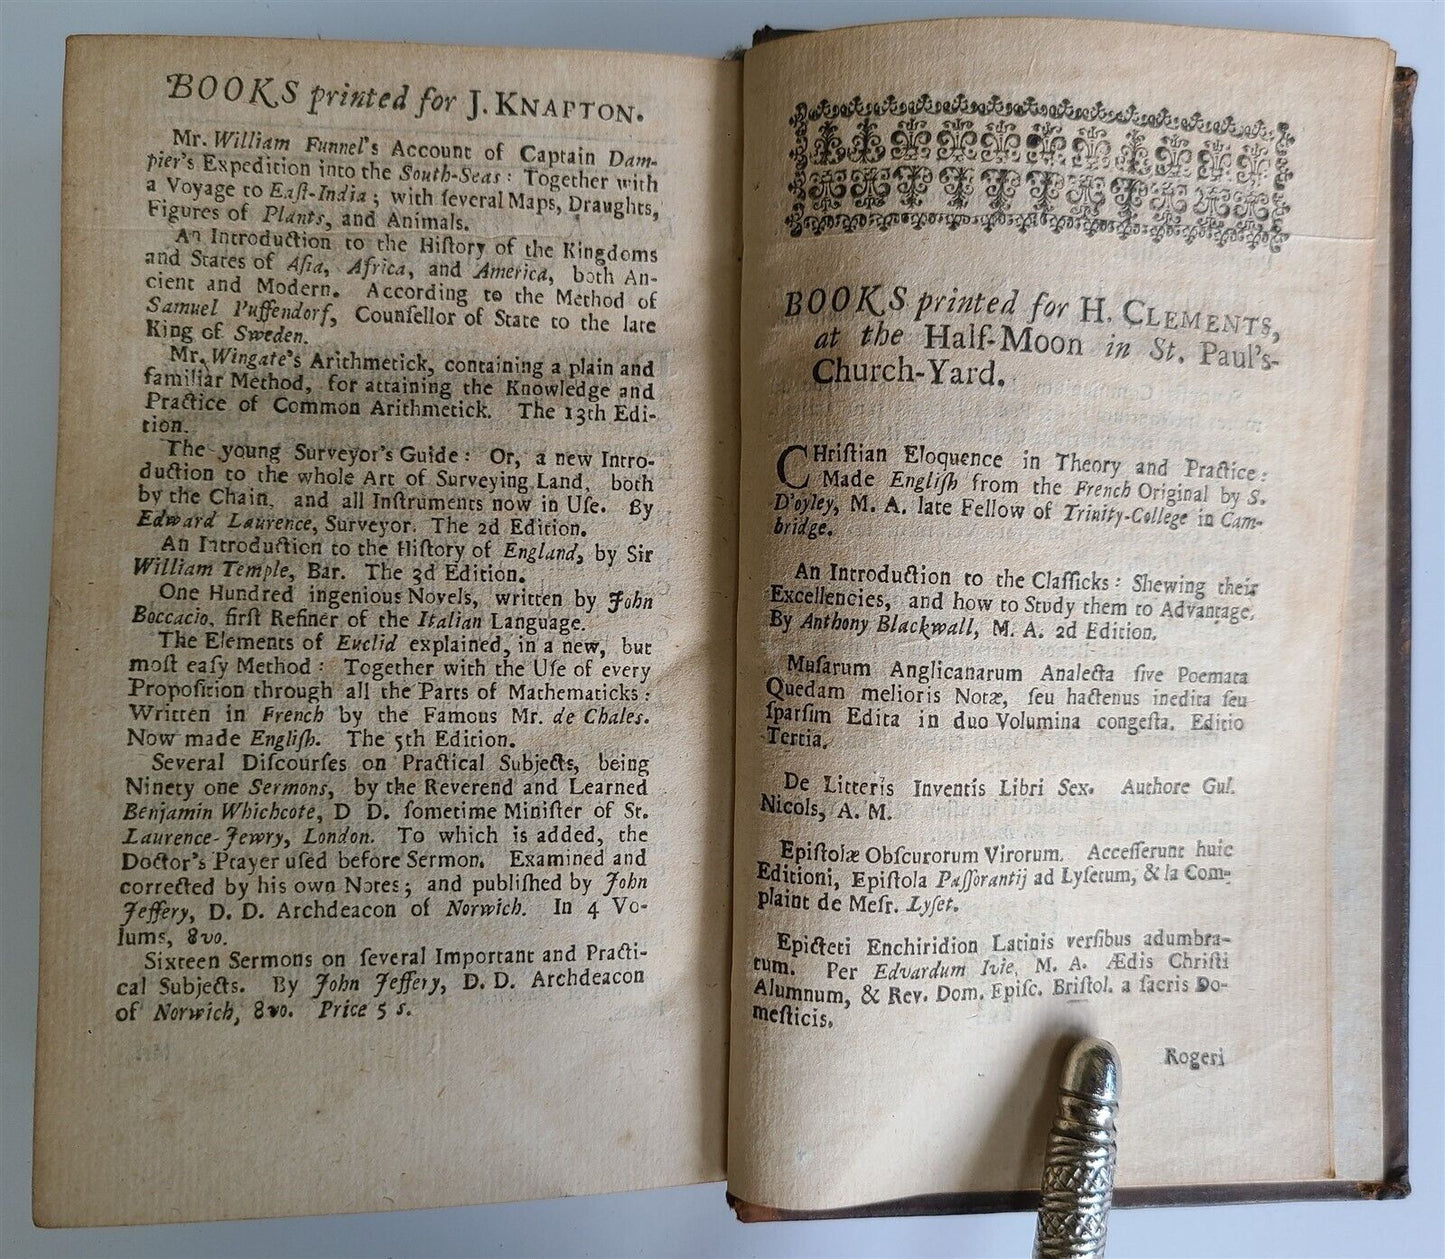 BOOKS printed for J. KNAPTON.
Mr. William Funnel's Account of Captain Dam-
pier's Expedition into the South-Seas: Together with
a Voyage to Eaſt-India; with ſeveral Maps, Draughts,
Figures of Plants, and Animals.
An Introduction to the Hiſtory of the Kingdoms
and States of Aſia, Africa, and America, both An-
cient and Modern. According to the Method of
Samuel Puffendorf, Counſellor of State to the late
King of Sweden.
Mr. Wingate's Arithmetick, containing a plain and
familiar Method, for attaining the Knowledge and
Practice of Common Arithmetick. The 13th Edi-
tion.
The young Surveyor's Guide: Or, a new Intro-
duction to the whole Art of Surveying Land, both
by the Chain, and all Inſtruments now in Uſe. By
Edward Laurence, Surveyor. The 2d Edition.
An Introduction to the Hiſtory of England, by Sir
William Temple, Bar. The 3d Edition.
One Hundred ingenious Novels, written by John
Boccacio, firſt Refiner of the Italian Language.
The Elements of Euclid explained, in a new, but
moſt eaſy Method: Together with the Uſe of every
Propoſition through all the Parts of Mathematicks:
Written in French by the Famous Mr. de Chales.
Now made Engliſh. The 5th Edition.
Several Diſcourſes on Practical Subjects, being
Ninety one Sermons, by the Reverend and Learned
Benjamin Whichcote, D D. ſometime Miniſter of St.
Laurence-Jewry, London. To which is added, the
Doctor's Prayer uſed before Sermon. Examined and
corrected by his own Notes; and publiſhed by John
Jeffery, D. D. Archdeacon of Norwich. In 4 Vo-
lums, 8vo.
Sixteen Sermons on ſeveral Important and Practi-
cal Subjects. By John Jeffery, D. D. Archdeacon
of Norwich, 8vo. Price 5 s.
BOOKS printed for H. CLEMENTS,
at the Half-Moon in St. Paul's-
Church-Yard.
CHriſtian Eloquence in Theory and Practice:
Made Engliſh from the French Original by S.
D'oyley, M. A. late Fellow of Trinity-College in Cam-
bridge.
An Introduction to the Claſſicks: Shewing their
Excellencies, and how to Study them to Advantage.
By Anthony Blackwall, M. A. 2d Edition.
Muſarum Anglicanarum Analecta ſive Poemata
Quedam melioris Notæ, ſeu hactenus inedita ſeu
ſparſim Edita in duo Volumina congeſta. Editio
Tertia.
De Litteris Inventis Libri Sex. Authore Gul.
Nicols, A. M.
Epiſtolæ Obſcurorum Virorum. Acceſſerunt huic
Editioni, Epiſtola Paſſorantij ad Lyſetum, & la Com-
plaint de Meſr. Lyſet.
Epicteti Enchiridion Latinis verſibus adumbra-
tum. Per Edvardum Ivie, M. A. Ædis Chriſti
Alumnum, & Rev. Dom. Epiſc. Briſtol. a ſacris Do-
meſticis.
Rogeri